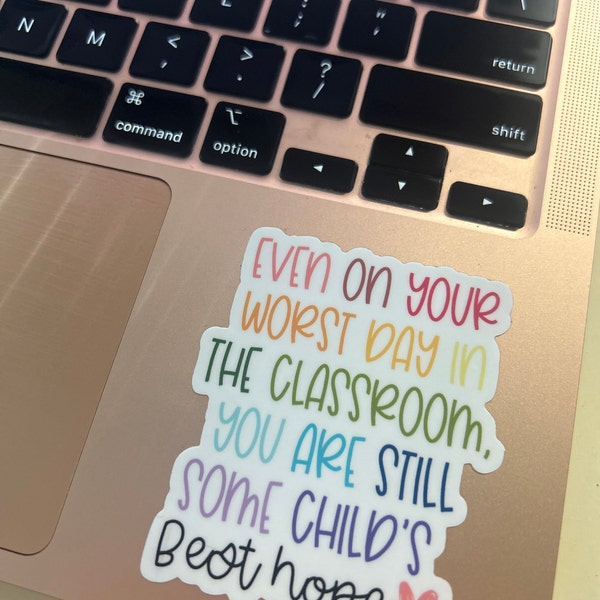 N M < , > . ? / return
⌘ command ⌥ option shift
◄ ▲ ▼ ►
EVEN ON YOUR
WORST DAY IN
THE CLASSROOM,
YOU ARE STILL
SOME CHILD'S
Best hope